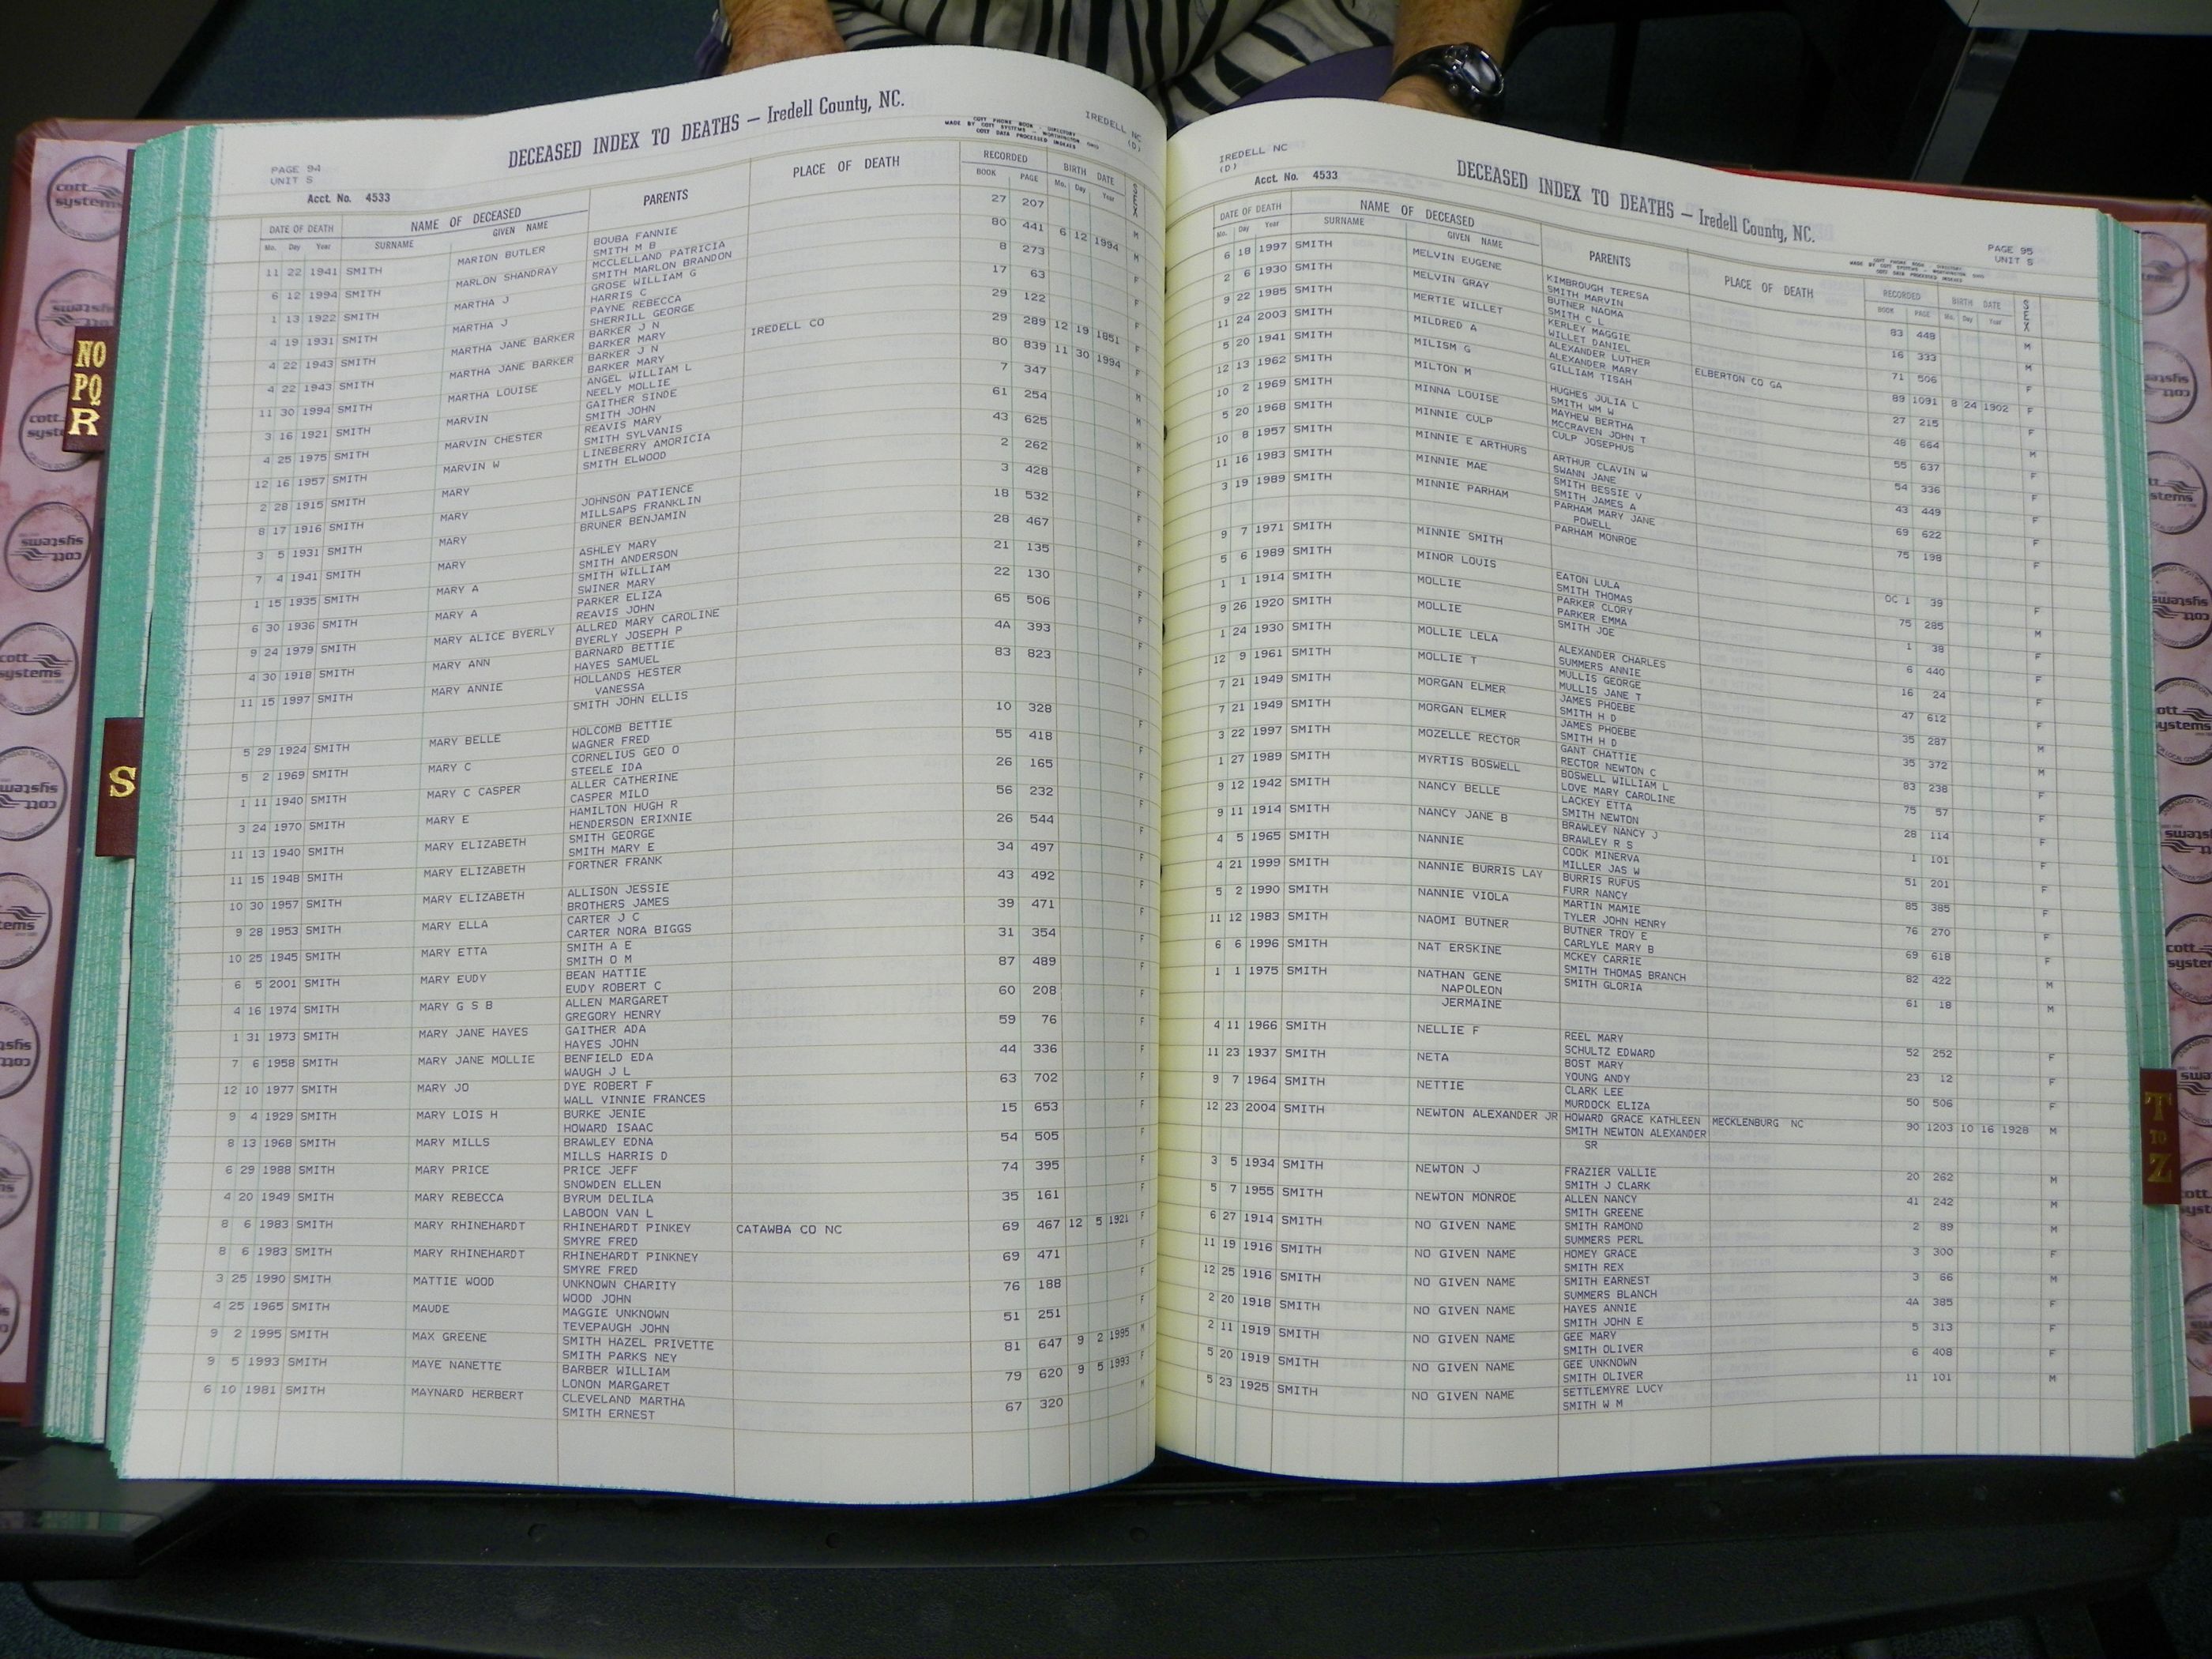 PAGE 94
UNIT S
Acct. No. 4533
DECEASED INDEX TO DEATHS — Iredell County, NC.
COTT PHONE BOOK - DIRECTORY
MADE BY COTT SYSTEMS - WORTHINGTON OHIO
COTT DATA PROCESSED INDEXES
IREDELL NC
(D)
DATE OF DEATH NAME OF DECEASED PARENTS PLACE OF DEATH RECORDED BIRTH DATE SEX
Mo. Day Year SURNAME GIVEN NAME BOOK PAGE Mo. Day Year
11 22 1941 SMITH MARION BUTLER BOUBA FANNIE 27 207 M
SMITH M B
6 12 1994 SMITH MARLON SHANDRAY MCCLELLAND PATRICIA 80 441 6 12 1994 M
SMITH MARLON BRANDON
1 13 1922 SMITH MARTHA J GROSE WILLIAM G 8 273 F
HARRIS C
4 19 1931 SMITH MARTHA J PAYNE REBECCA 17 63 F
SHERRILL GEORGE
4 22 1943 SMITH MARTHA JANE BARKER BARKER J N 29 122 F
BARKER MARY
4 22 1943 SMITH MARTHA JANE BARKER BARKER J N IREDELL CO 29 289 12 19 1851 F
BARKER MARY
11 30 1994 SMITH MARTHA LOUISE ANGEL WILLIAM L 80 839 11 30 1994 F
NEELY MOLLIE
3 16 1921 SMITH MARVIN GAITHER SINDE 7 347 M
SMITH JOHN
4 25 1975 SMITH MARVIN CHESTER REAVIS MARY 61 254 M
SMITH SYLVANIS
12 16 1957 SMITH MARVIN W LINEBERRY AMORICIA 43 625 M
SMITH ELWOOD
2 28 1915 SMITH MARY 2 262 F
8 17 1916 SMITH MARY JOHNSON PATIENCE 3 428 F
MILLSAPS FRANKLIN
3 5 1931 SMITH MARY BRUNER BENJAMIN 18 532 F
7 4 1941 SMITH MARY ASHLEY MARY 28 467 F
SMITH ANDERSON
1 15 1935 SMITH MARY A SMITH WILLIAM 21 135 F
SWINER MARY
6 30 1936 SMITH MARY A PARKER ELIZA 22 130 F
REAVIS JOHN
9 24 1979 SMITH MARY ALICE BYERLY ALLRED MARY CAROLINE 65 506 F
BYERLY JOSEPH P
4 30 1918 SMITH MARY ANN BARNARD BETTIE 4A 393 F
HAYES SAMUEL
11 15 1997 SMITH MARY ANNIE HOLLANDS HESTER 83 823 F
VANESSA
SMITH JOHN ELLIS
5 29 1924 SMITH MARY BELLE HOLCOMB BETTIE 10 328 F
WAGNER FRED
5 2 1969 SMITH MARY C CORNELIUS GEO O 55 418 F
STEELE IDA
1 11 1940 SMITH MARY C CASPER ALLER CATHERINE 26 165 F
CASPER MILO
3 24 1970 SMITH MARY E HAMILTON HUGH R 56 232 F
HENDERSON ERIXNIE
11 13 1940 SMITH MARY ELIZABETH SMITH GEORGE 26 544 F
SMITH MARY E
11 15 1948 SMITH MARY ELIZABETH FORTNER FRANK 34 497 F
10 30 1957 SMITH MARY ELIZABETH ALLISON JESSIE 43 492 F
BROTHERS JAMES
9 28 1953 SMITH MARY ELLA CARTER J C 39 471 F
CARTER NORA BIGGS
10 25 1945 SMITH MARY ETTA SMITH A E 31 354 F
SMITH O M
6 5 2001 SMITH MARY EUDY BEAN HATTIE 87 489 F
EUDY ROBERT C
4 16 1974 SMITH MARY G S B ALLEN MARGARET 60 208 F
GREGORY HENRY
1 31 1973 SMITH MARY JANE HAYES GAITHER ADA 59 76 F
HAYES JOHN
7 6 1958 SMITH MARY JANE MOLLIE BENFIELD EDA 44 336 F
WAUGH J L
12 10 1977 SMITH MARY JO DYE ROBERT F 63 702 F
WALL VINNIE FRANCES
9 4 1929 SMITH MARY LOIS H BURKE JENIE 15 653 F
HOWARD ISAAC
8 13 1968 SMITH MARY MILLS BRAWLEY EDNA 54 505 F
MILLS HARRIS D
6 29 1988 SMITH MARY PRICE PRICE JEFF 74 395 F
SNOWDEN ELLEN
4 20 1949 SMITH MARY REBECCA BYRUM DELILA 35 161 F
LABOON VAN L
8 6 1983 SMITH MARY RHINEHARDT RHINEHARDT PINKEY CATAWBA CO NC 69 467 12 5 1921 F
SMYRE FRED
8 6 1983 SMITH MARY RHINEHARDT RHINEHARDT PINKNEY 69 471 F
SMYRE FRED
3 25 1990 SMITH MATTIE WOOD UNKNOWN CHARITY 76 188 F
WOOD JOHN
4 25 1965 SMITH MAUDE MAGGIE UNKNOWN 51 251 F
TEVEPAUGH JOHN
9 2 1995 SMITH MAX GREENE SMITH HAZEL PRIVETTE 81 647 9 2 1995 M
SMITH PARKS NEY
9 5 1993 SMITH MAYE NANETTE BARBER WILLIAM 79 620 9 5 1993 F
LONON MARGARET
6 10 1981 SMITH MAYNARD HERBERT CLEVELAND MARTHA 67 320 M
SMITH ERNEST
NO
PQ
R
S
IREDELL NC
(D)
Acct. No. 4533
DECEASED INDEX TO DEATHS — Iredell County, NC.
COTT PHONE BOOK - DIRECTORY
MADE BY COTT SYSTEMS - WORTHINGTON OHIO
COTT DATA PROCESSED INDEXES
PAGE 95
UNIT S
DATE OF DEATH NAME OF DECEASED PARENTS PLACE OF DEATH RECORDED BIRTH DATE SEX
Mo. Day Year SURNAME GIVEN NAME BOOK PAGE Mo. Day Year
6 18 1997 SMITH MELVIN EUGENE KIMBROUGH TERESA 83 449 M
SMITH MARVIN
2 6 1930 SMITH MELVIN GRAY BUTNER NAOMA 16 333 M
SMITH C L
9 22 1985 SMITH MERTIE WILLET KERLEY MAGGIE 71 506 F
WILLET DANIEL
11 24 2003 SMITH MILDRED A ALEXANDER LUTHER ELBERTON CO GA 89 1091 8 24 1902 F
ALEXANDER MARY
5 20 1941 SMITH MILISM G GILLIAM TISAH 27 215 F
12 13 1962 SMITH MILTON M HUGHES JULIA L 48 664 M
SMITH WM W
10 2 1969 SMITH MINNA LOUISE MAYHEW BERTHA 55 637 F
MCCRAVEN JOHN T
5 20 1968 SMITH MINNIE CULP CULP JOSEPHUS 54 336 F
10 8 1957 SMITH MINNIE E ARTHURS ARTHUR CLAVIN W 43 449 F
SWANN JANE
11 16 1983 SMITH MINNIE MAE SMITH BESSIE V 69 622 F
SMITH JAMES A
3 19 1989 SMITH MINNIE PARHAM PARHAM MARY JANE 75 198 F
POWELL
PARHAM MONROE
9 7 1971 SMITH MINNIE SMITH OC 1 39 F
5 6 1989 SMITH MINOR LOUIS EATON LULA 75 285 M
SMITH THOMAS
1 1 1914 SMITH MOLLIE PARKER CLORY 1 38 F
PARKER EMMA
9 26 1920 SMITH MOLLIE SMITH JOE 6 440 F
1 24 1930 SMITH MOLLIE LELA ALEXANDER CHARLES 16 24 F
SUMMERS ANNIE
12 9 1961 SMITH MOLLIE T MULLIS GEORGE 47 612 F
MULLIS JANE T
7 21 1949 SMITH MORGAN ELMER JAMES PHOEBE 35 287 M
SMITH H D
7 21 1949 SMITH MORGAN ELMER JAMES PHOEBE 35 372 M
SMITH H D
3 22 1997 SMITH MOZELLE RECTOR GANT CHATTIE 83 238 F
RECTOR NEWTON C
1 27 1989 SMITH MYRTIS BOSWELL BOSWELL WILLIAM L 75 57 F
LOVE MARY CAROLINE
9 12 1942 SMITH NANCY BELLE LACKEY ETTA 28 114 F
SMITH NEWTON
9 11 1914 SMITH NANCY JANE B BRAWLEY NANCY J 1 101 F
BRAWLEY R S
4 5 1965 SMITH NANNIE COOK MINERVA 51 201 F
MILLER JAS W
4 21 1999 SMITH NANNIE BURRIS LAY BURRIS RUFUS 85 385 F
FURR NANCY
5 2 1990 SMITH NANNIE VIOLA MARTIN MAMIE 76 270 F
TYLER JOHN HENRY
11 12 1983 SMITH NAOMI BUTNER BUTNER TROY E 69 618 F
CARLYLE MARY B
6 6 1996 SMITH NAT ERSKINE MCKEY CARRIE 82 422 M
SMITH THOMAS BRANCH
1 1 1975 SMITH NATHAN GENE SMITH GLORIA 61 18 M
NAPOLEON
JERMAINE
4 11 1966 SMITH NELLIE F REEL MARY 52 252 F
SCHULTZ EDWARD
11 23 1937 SMITH NETA BOST MARY 23 12 F
YOUNG ANDY
9 7 1964 SMITH NETTIE CLARK LEE 50 506 F
MURDOCK ELIZA
12 23 2004 SMITH NEWTON ALEXANDER JR HOWARD GRACE KATHLEEN MECKLENBURG NC 90 1203 10 16 1928 M
SMITH NEWTON ALEXANDER
SR
3 5 1934 SMITH NEWTON J FRAZIER VALLIE 20 262 M
SMITH J CLARK
5 7 1955 SMITH NEWTON MONROE ALLEN NANCY 41 242 M
SMITH GREENE
6 27 1914 SMITH NO GIVEN NAME SMITH RAMOND 2 89 M
SUMMERS PERL
11 19 1916 SMITH NO GIVEN NAME HOMEY GRACE 3 300 F
SMITH REX
12 25 1916 SMITH NO GIVEN NAME SMITH EARNEST 3 66 M
SUMMERS BLANCH
2 20 1918 SMITH NO GIVEN NAME HAYES ANNIE 4A 385 F
SMITH JOHN E
2 11 1919 SMITH NO GIVEN NAME GEE MARY 5 313 F
SMITH OLIVER
5 20 1919 SMITH NO GIVEN NAME GEE UNKNOWN 6 408 F
SMITH OLIVER
5 23 1925 SMITH NO GIVEN NAME SETTLEMYRE LUCY 11 101 M
SMITH W M
T
TO
Z
cott
systems